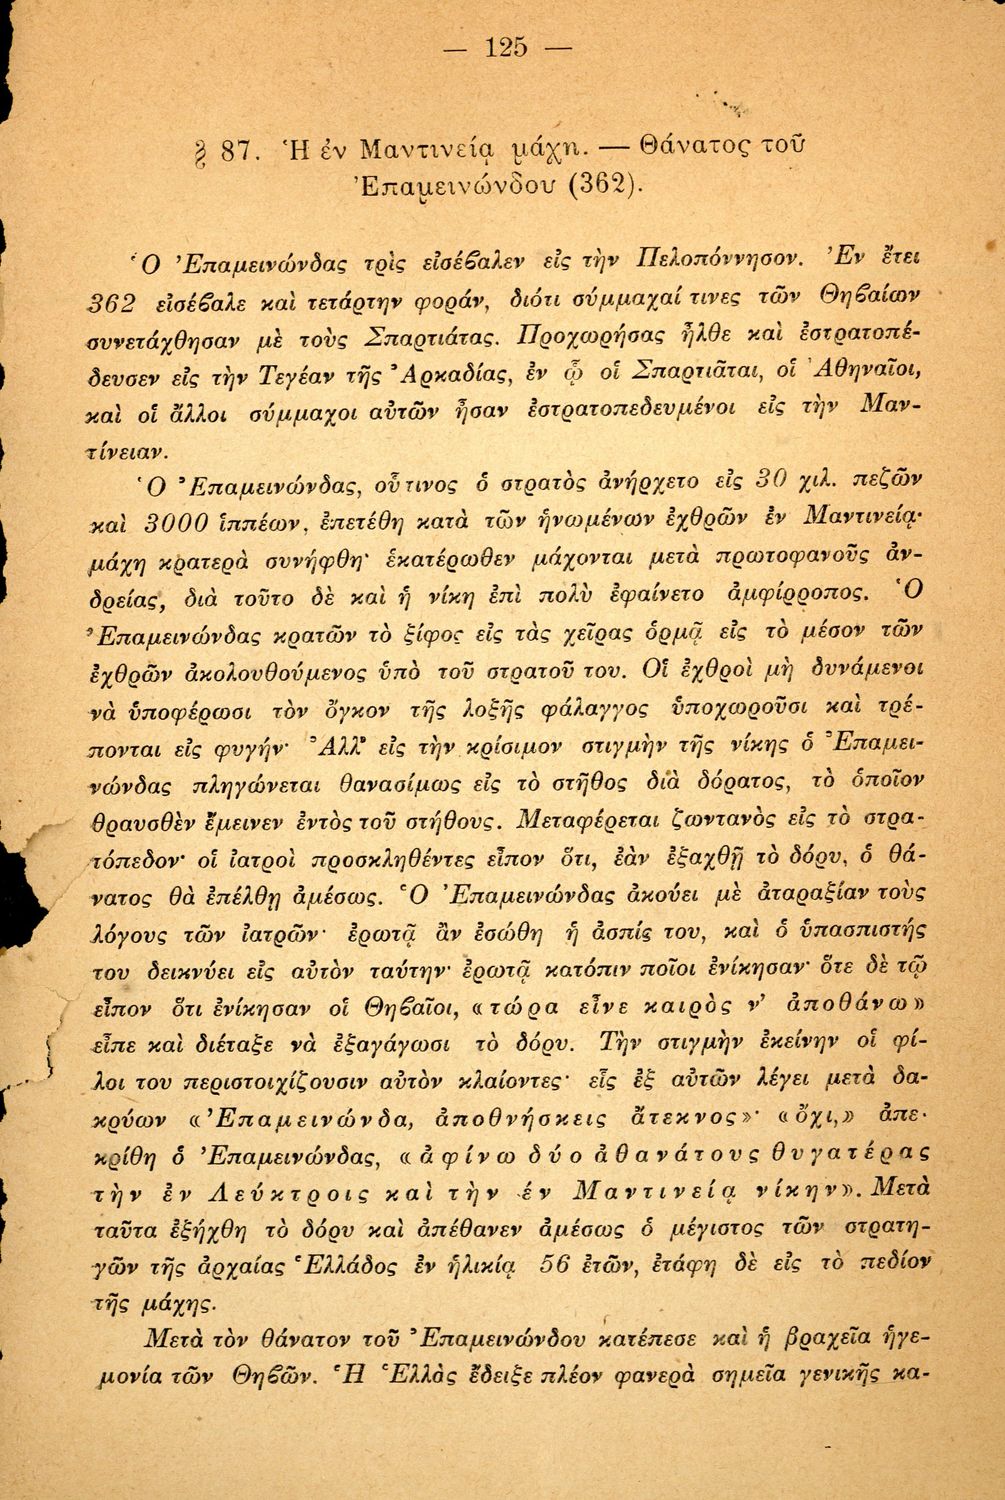 — 125 —
§ 87. Ἡ ἐν Μαντινείᾳ μάχη. — Θάνατος τοῦ
Ἐπαμεινώνδου (362).
Ὁ Ἐπαμεινώνδας τρὶς εἰσέϐαλεν εἰς τὴν Πελοπόννησον. Ἐν ἔτει
362 εἰσέϐαλε καὶ τετάρτην φοράν, διότι σύμμαχαί τινες τῶν Θηϐαίων
συνετάχθησαν μὲ τοὺς Σπαρτιάτας. Προχωρήσας ἦλθε καὶ ἐστρατοπέ-
δευσεν εἰς τὴν Τεγέαν τῆς Ἀρκαδίας, ἐν ᾧ οἱ Σπαρτιᾶται, οἱ Ἀθηναῖοι,
καὶ οἱ ἄλλοι σύμμαχοι αὐτῶν ἦσαν ἐστρατοπεδευμένοι εἰς τὴν Μαν-
τίνειαν.
Ὁ Ἐπαμεινώνδας, οὗτινος ὁ στρατὸς ἀνήρχετο εἰς 30 χιλ. πεζῶν
καὶ 3000 ἱππέων, ἐπετέθη κατὰ τῶν ἡνωμένων ἐχθρῶν ἐν Μαντινείᾳ·
μάχη κρατερὰ συνήφθη· ἑκατέρωθεν μάχονται μετὰ πρωτοφανοῦς ἀν-
δρείας, διὰ τοῦτο δὲ καὶ ἡ νίκη ἐπὶ πολὺ ἐφαίνετο ἀμφίρροπος. Ὁ
Ἐπαμεινώνδας κρατῶν τὸ ξίφος εἰς τὰς χεῖρας ὁρμᾷ εἰς τὸ μέσον τῶν
ἐχθρῶν ἀκολουθούμενος ὑπὸ τοῦ στρατοῦ του. Οἱ ἐχθροὶ μὴ δυνάμενοι
νὰ ὑποφέρωσι τὸν ὄγκον τῆς λοξῆς φάλαγγος ὑποχωροῦσι καὶ τρέ-
πονται εἰς φυγήν· Ἀλλ' εἰς τὴν κρίσιμον στιγμὴν τῆς νίκης ὁ Ἐπαμει-
νώνδας πληγώνεται θανασίμως εἰς τὸ στῆθος διὰ δόρατος, τὸ ὁποῖον
θραυσθὲν ἔμεινεν ἐντὸς τοῦ στήθους. Μεταφέρεται ζωντανὸς εἰς τὸ στρα-
τόπεδον· οἱ ἰατροὶ προσκληθέντες εἶπον ὅτι, ἐὰν ἐξαχθῇ τὸ δόρυ, ὁ θά-
νατος θὰ ἐπέλθῃ ἀμέσως. Ὁ Ἐπαμεινώνδας ἀκούει μὲ ἀταραξίαν τοὺς
λόγους τῶν ἰατρῶν· ἐρωτᾷ ἂν ἐσώθη ἡ ἀσπίς του, καὶ ὁ ὑπασπιστής
του δεικνύει εἰς αὐτὸν ταύτην· ἐρωτᾷ κατόπιν ποῖοι ἐνίκησαν· ὅτε δὲ τῷ
εἶπον ὅτι ἐνίκησαν οἱ Θηϐαῖοι, «τώρα εἶνε καιρὸς ν' ἀποθάνω»
εἶπε καὶ διέταξε νὰ ἐξαγάγωσι τὸ δόρυ. Τὴν στιγμὴν ἐκείνην οἱ φί-
λοι του περιστοιχίζουσιν αὐτὸν κλαίοντες· εἷς ἐξ αὐτῶν λέγει μετὰ δα-
κρύων «Ἐπαμεινώνδα, ἀποθνήσκεις ἄτεκνος»· «ὄχι,» ἀπε-
κρίθη ὁ Ἐπαμεινώνδας, «ἀφίνω δύο ἀθανάτους θυγατέρας
τὴν ἐν Λεύκτροις καὶ τὴν ἐν Μαντινείᾳ νίκην». Μετὰ
ταῦτα ἐξήχθη τὸ δόρυ καὶ ἀπέθανεν ἀμέσως ὁ μέγιστος τῶν στρατη-
γῶν τῆς ἀρχαίας Ἑλλάδος ἐν ἡλικίᾳ 56 ἐτῶν, ἐτάφη δὲ εἰς τὸ πεδίον
τῆς μάχης.
Μετὰ τὸν θάνατον τοῦ Ἐπαμεινώνδου κατέπεσε καὶ ἡ βραχεῖα ἡγε-
μονία τῶν Θηϐῶν. Ἡ Ἑλλὰς ἔδειξε πλέον φανερὰ σημεῖα γενικῆς κα-